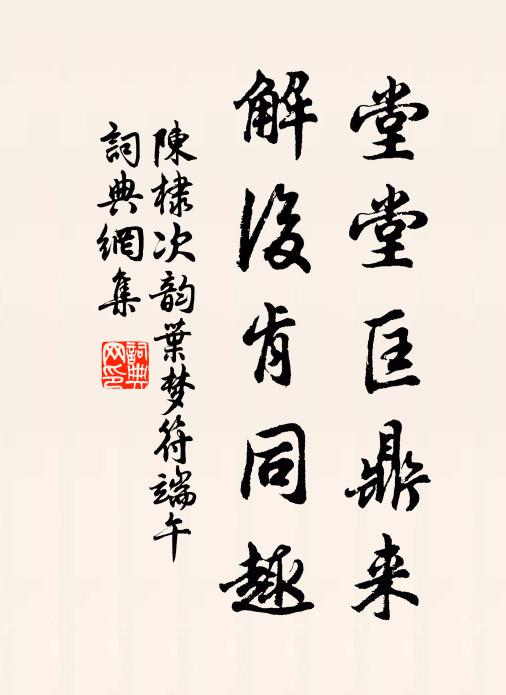 堂堂匡鼎来
解後肯同趣
陳棣次韵葉梦符端午
詞典網集
詞典
网印